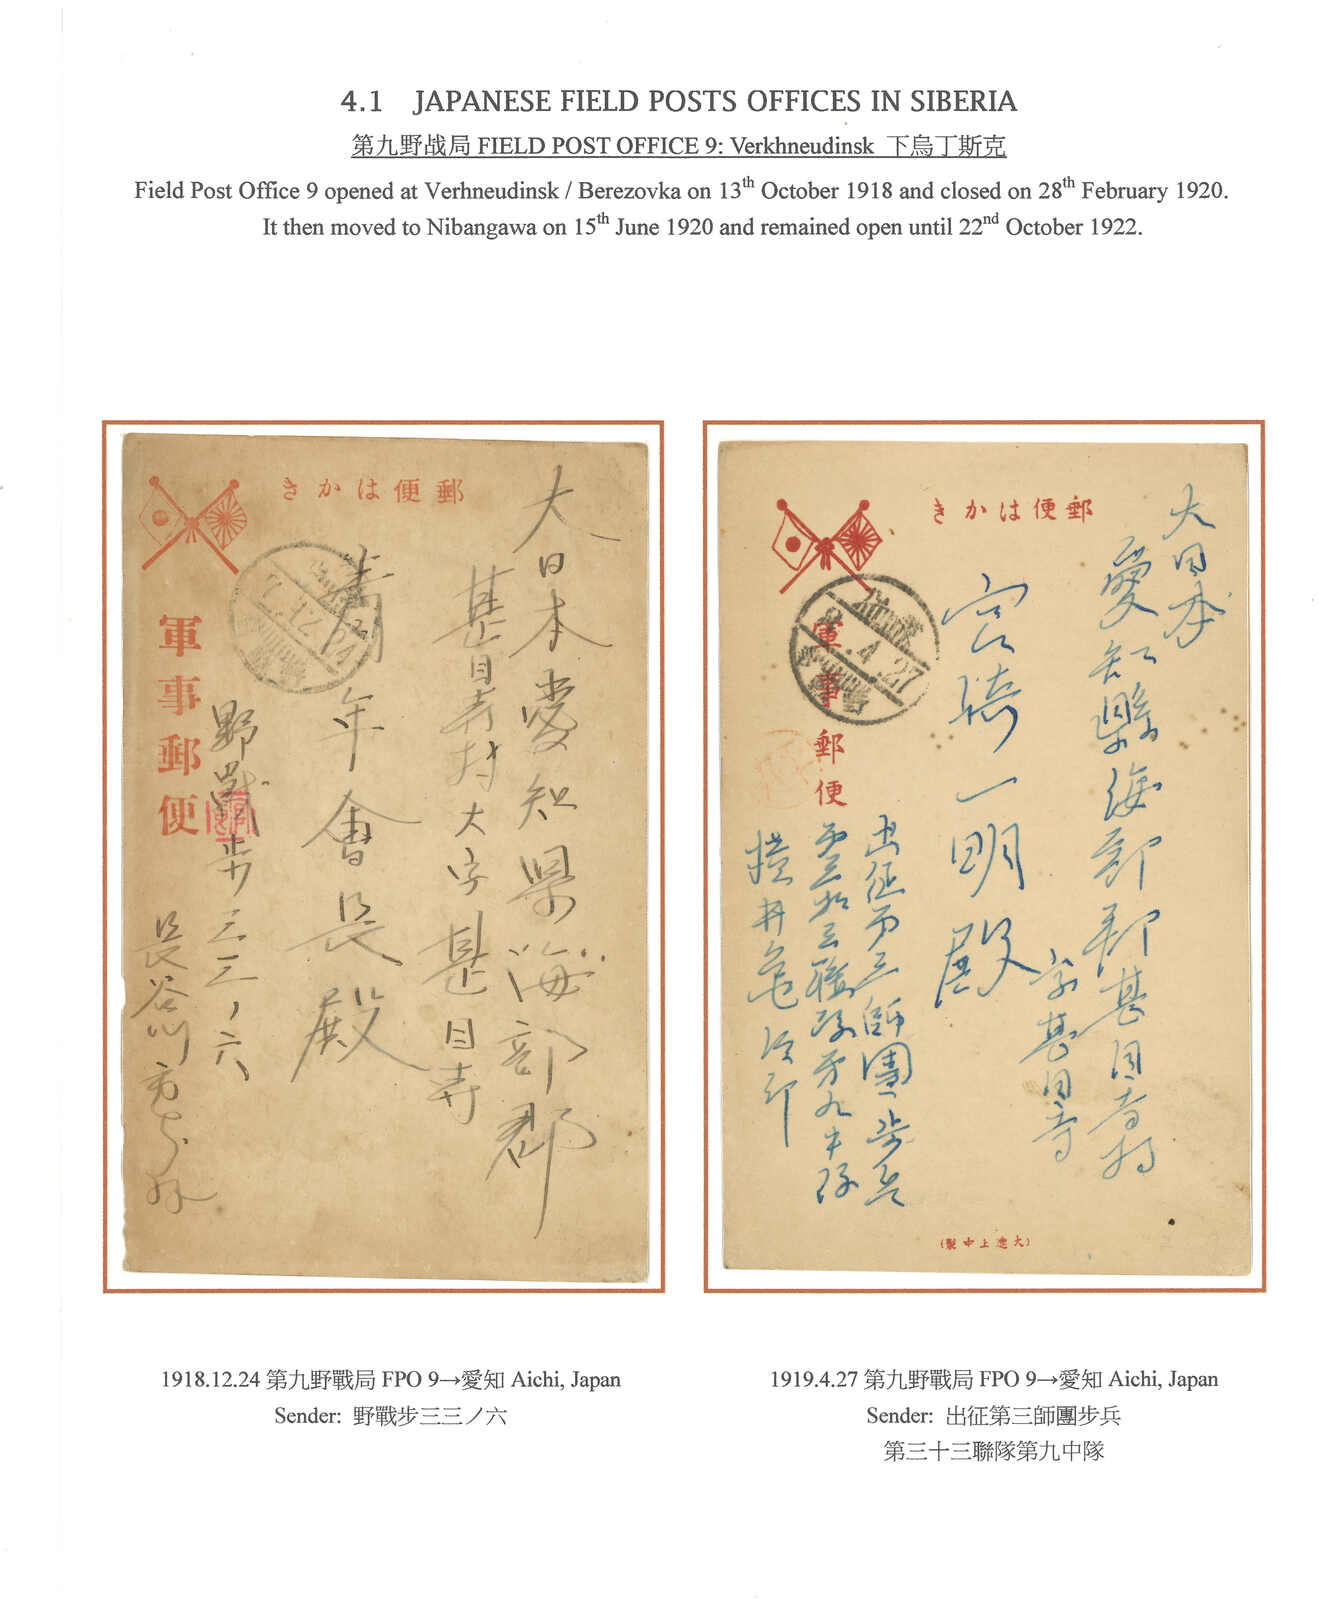 4.1 JAPANESE FIELD POSTS OFFICES IN SIBERIA
第九野战局 FIELD POST OFFICE 9: Verkhneudinsk 下烏丁斯克
Field Post Office 9 opened at Verhneudinsk / Berezovka on 13th October 1918 and closed on 28th February 1920.
It then moved to Nibangawa on 15th June 1920 and remained open until 22nd October 1922.
郵便はかき
軍事郵便
7.12.24
大日本愛知県海部郡
甚目寺村大字甚目寺
青年會長殿
野戰歩三三ノ六
長谷川
郵便はかき
軍事郵便
8.4.27
大日本
愛知縣海部郡甚目寺村
字甚目寺
宮崎一明殿
出征第三師團歩兵
第三十三聯隊第九中隊
横井
(大連上中製)
1918.12.24 第九野戰局 FPO 9→愛知 Aichi, Japan
Sender: 野戰步三三ノ六
1919.4.27 第九野戰局 FPO 9→愛知 Aichi, Japan
Sender: 出征第三師團步兵
第三十三聯隊第九中隊